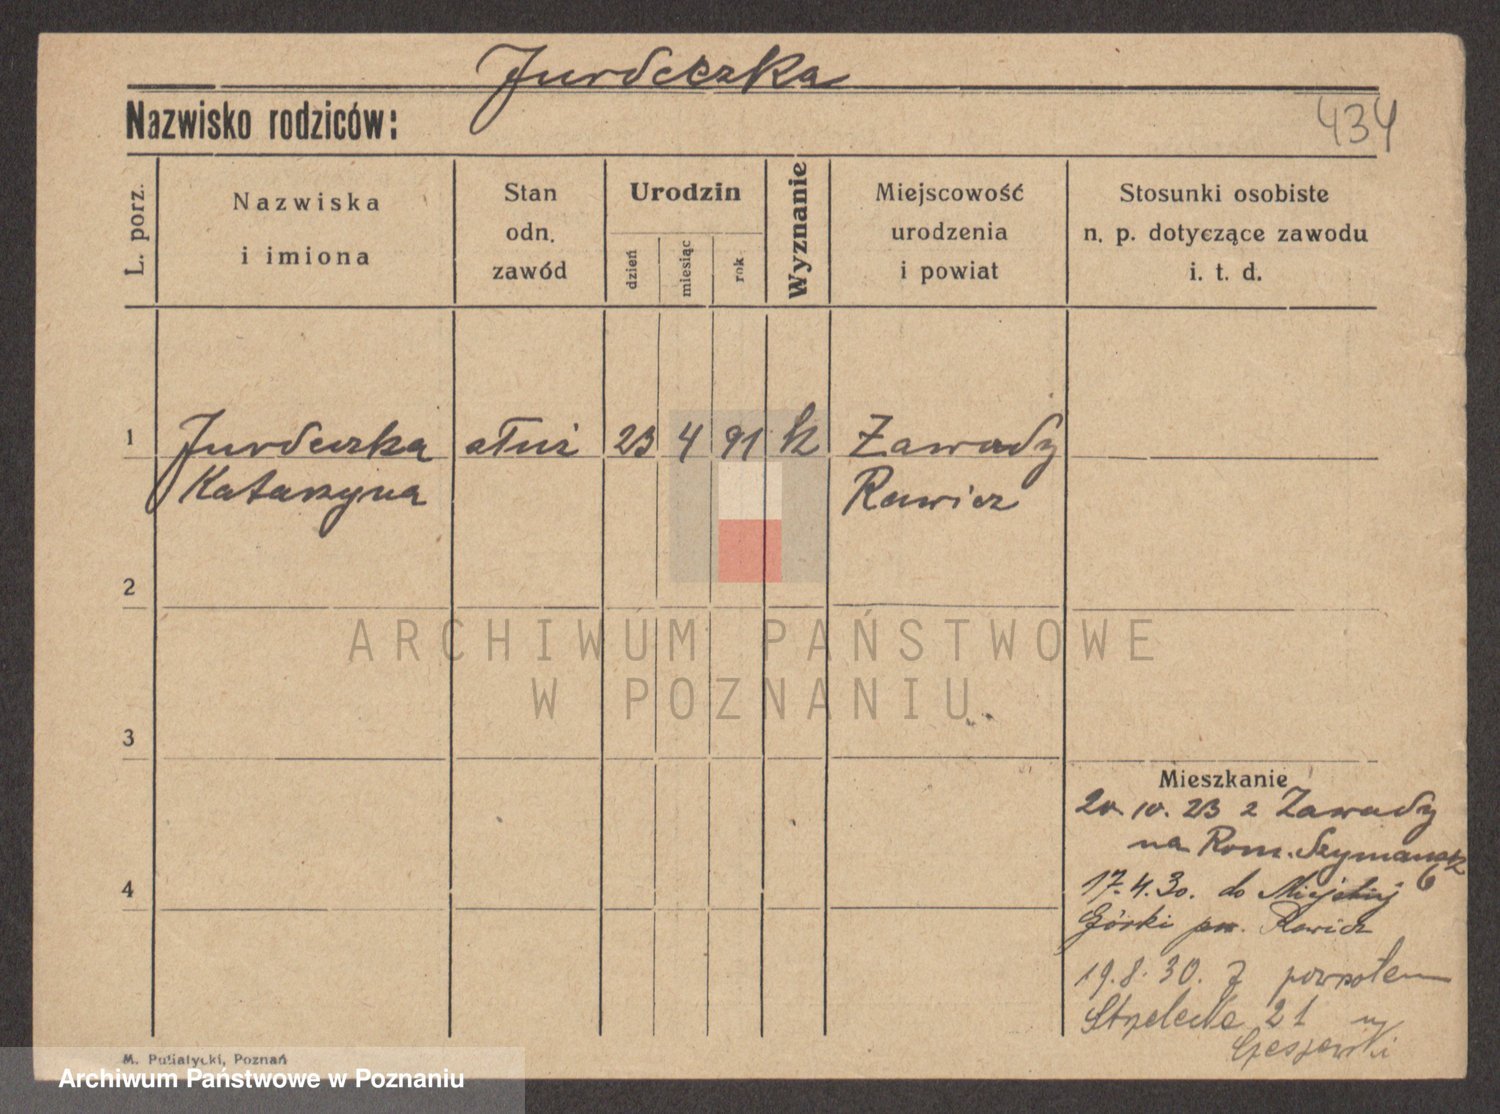 Jurdeczka
Nazwisko rodziców:
434
L. porz.
Nazwiska
i imiona
Stan
odn.
zawód
Urodzin
dzień
miesiąc
rok
Wyznanie
Miejscowość
urodzenia
i powiat
Stosunki osobiste
n. p. dotyczące zawodu
i. t. d.
1 Jurdeczka służ 23 4 91 k Zawady
Katarzyna Rawicz
2
ARCHIWUM PAŃSTWOWE
W POZNANIU
3
Mieszkanie
20.10.23 z Zawady
na Rom. Szymansk
6
4
17.4.30. do Miejskiej
Górki pow. Rawicz
19.8.30. z powrotem
Strzelecka 21
M. Putiatycki, Poznań
Archiwum Państwowe w Poznaniu